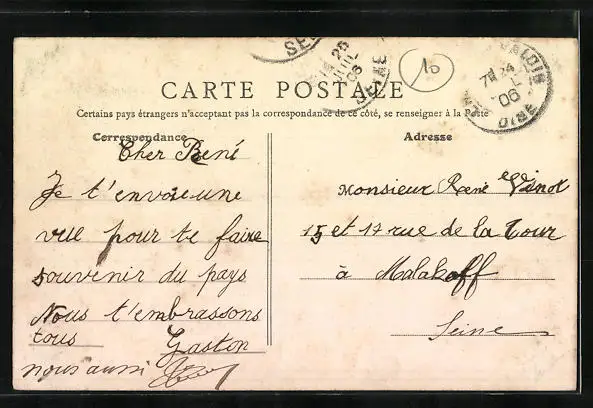 CARTE POSTALE
Certains pays étrangers n'acceptant pas la correspondance de ce côté, se renseigner à la Poste
Correspondance
Adresse
Cher René
Je t'envoie une
vue pour te faire
souvenir du pays
Nous t'embrassons
tous Gaston
nous aussi
Monsieur René Vinot
15 et 17 rue de la Tour
à Malakoff
Seine
10
25
JUIL
06
SEINE
06